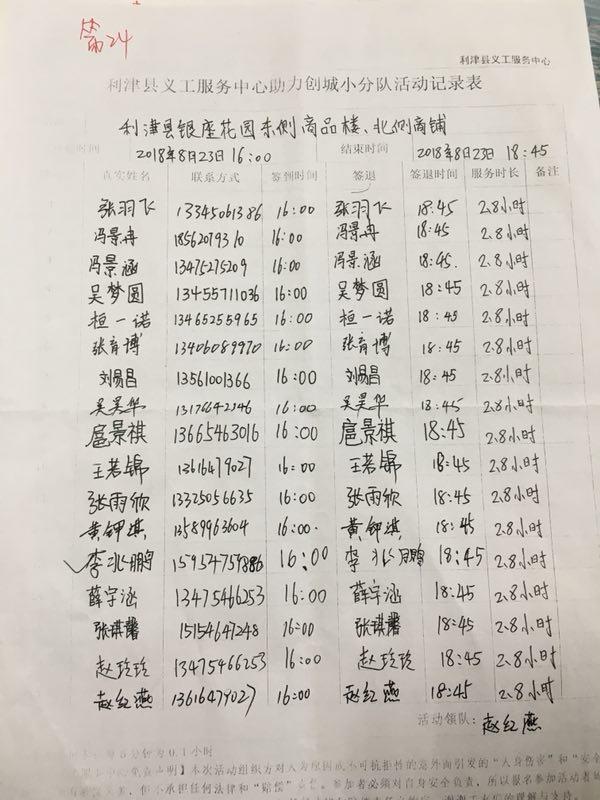 第24
利津县义工服务中心
利津县义工服务中心助力创城小分队活动记录表
利津县银座花园东侧商品楼、北侧商铺
时间 2018年8月23日 16:00 结束时间 2018年8月23日 18:45
真实姓名 联系方式 签到时间 签退 签退时间 服务时长 备注
张羽飞 13345061386 16:00 张羽飞 18:45 2.8小时
冯景冉 18562079310 16:00 冯景冉 18:45 2.8小时
冯景涵 13475275209 16:00 冯景涵 18:45. 2.8小时
吴梦圆 13455711036 16:00 吴梦圆 18:45 2.8小时
桓一诺 13465255965 16:00 桓一诺 18:45 2.8小时
张育博 13406089970 16:00 张育博 18:45 2.8小时
刘易昌 13561001366 16:00 刘易昌 18:45 2.8小时
吴昊华 16:00 吴昊华 18:45 2.8小时
扈景祺 13665463016 16:00 扈景祺 18:45 2.8小时
王若锦 13616479027 16:00 王若锦 18:45 2.8小时
张雨欣 13325056635 16:00 张雨欣 18:45 2.8小时
黄钾琪 13589963604 16:00. 黄钾琪 18:45 2.8小时
李兆鹏 16:00 李兆鹏 18:45 2.8小时
薛宇涵 13475466253 16:00 薛宇涵 18:45 2.8小时
张琪馨 15154647248 16:00 张琪馨 18:45 2.8小时
赵玲玲 13475466253 16:00 赵玲玲 18:45 2.8小时
赵红燕 13616479027 16:00 赵红燕 18:45 2.8小时
活动领队: 赵红燕
分钟为0.1小时
声明】本次活动组织方对人为原因或不可抗拒性的意外而引发的“人身伤害”和“安全
但不承担任何法律和“赔偿”责任。参加者必须对自身安全负责，所以报名参加活动者